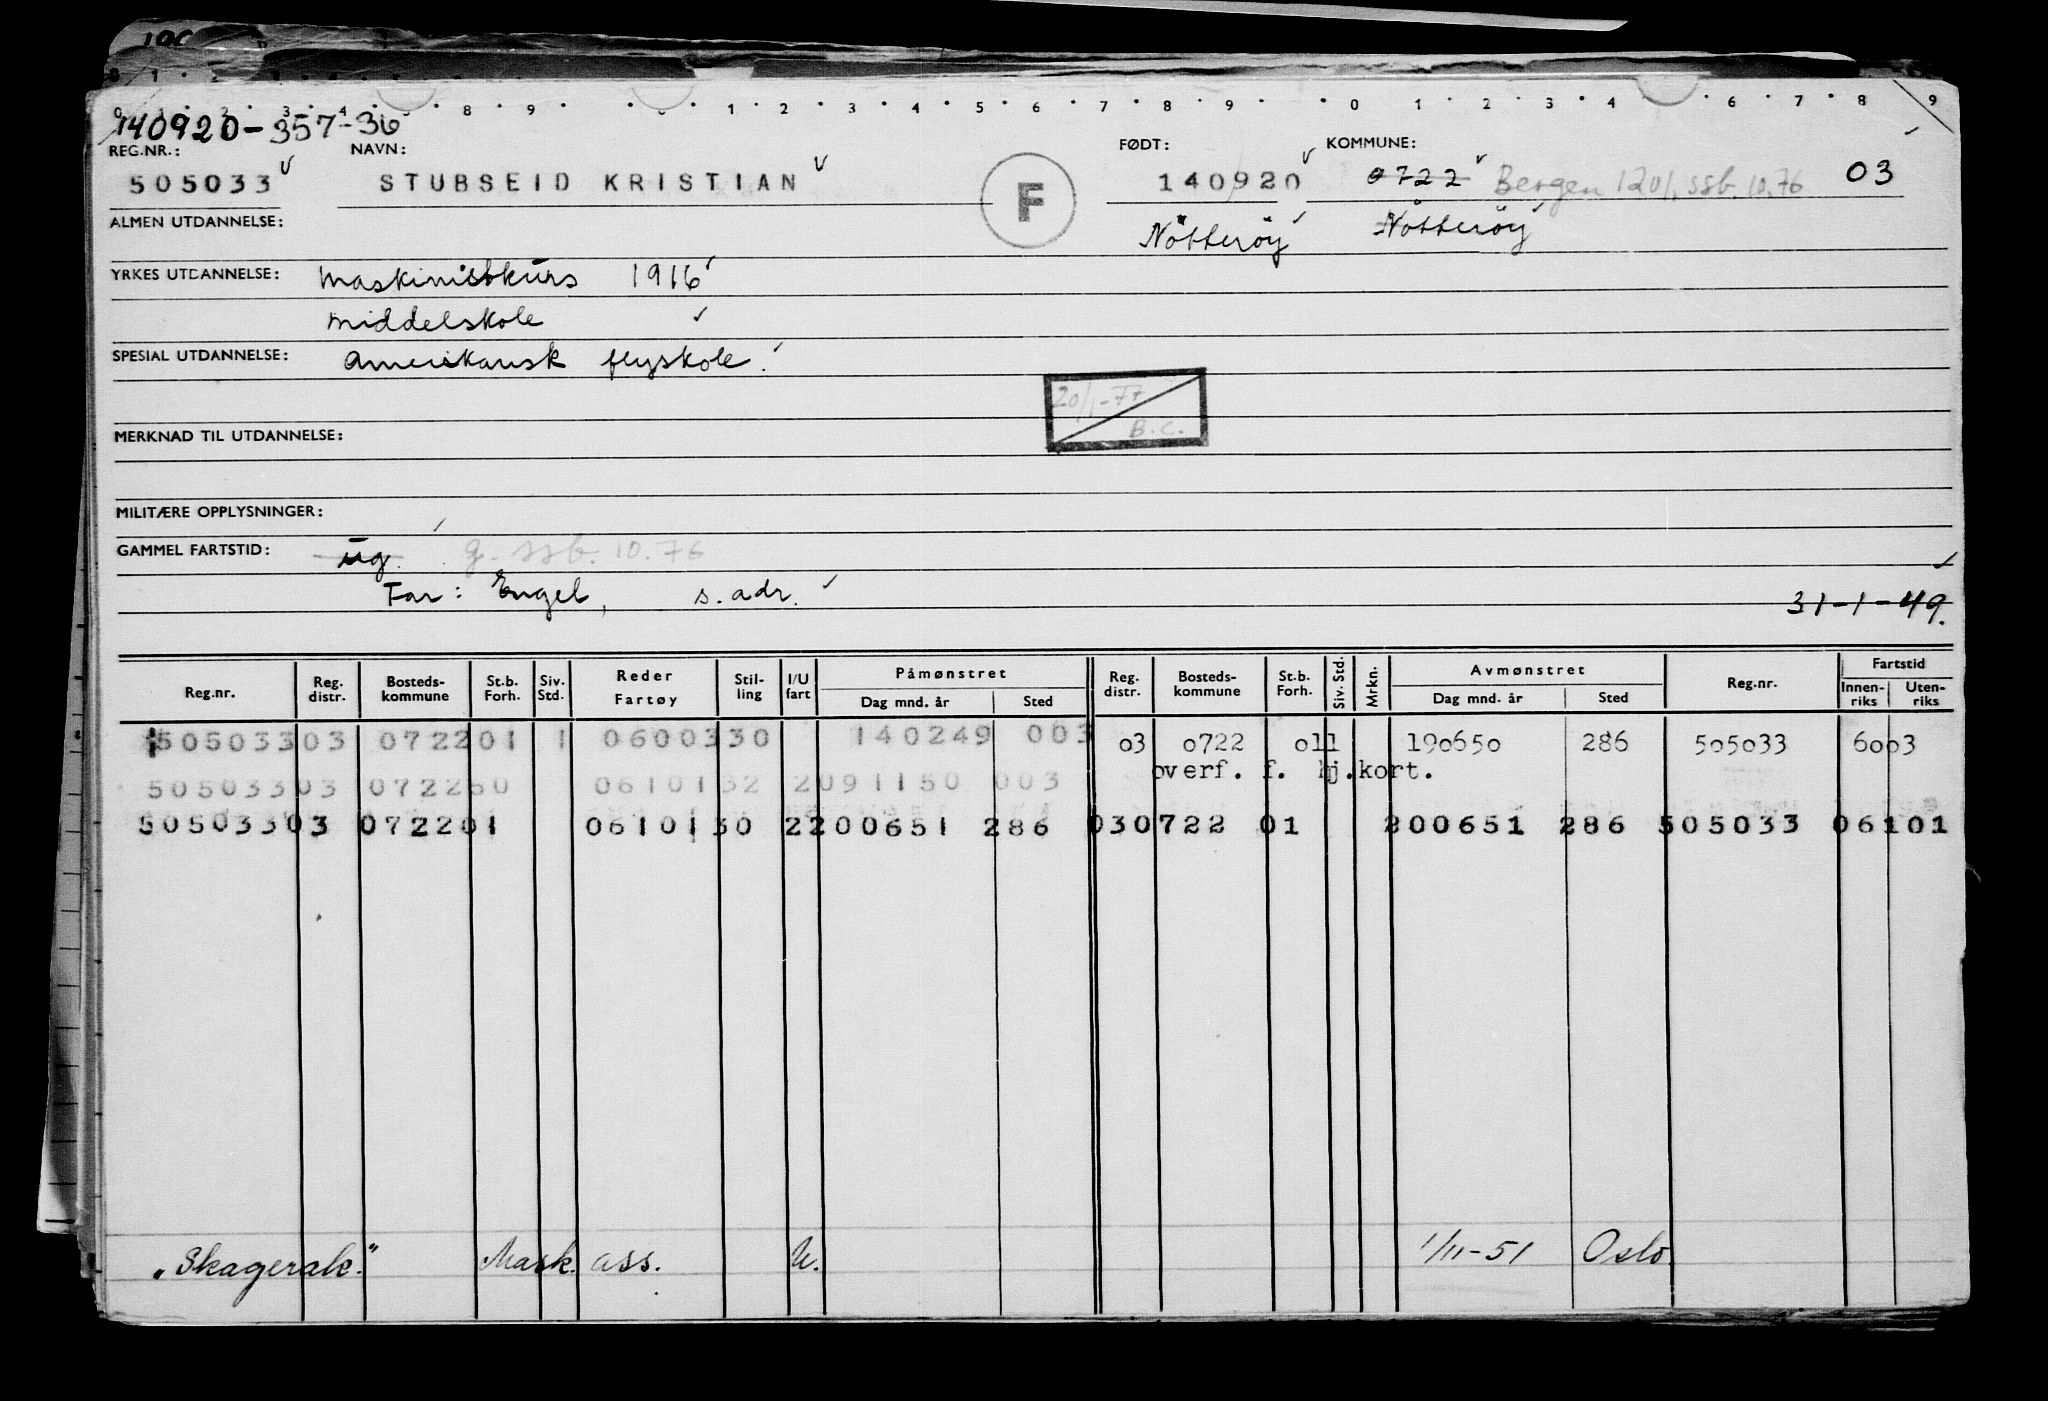 140920-357-36
REG.NR.: NAVN: FØDT: KOMMUNE:
505033 STUBSEID KRISTIAN F 140920 0722 Bergen 1201, ssb. 10.76 03
ALMEN UTDANNELSE: Nötteröy Nötteröy
YRKES UTDANNELSE: Maskinistkurs 1916
Middelskole
SPESIAL UTDANNELSE: Amerikansk flyskole.
20/1-77
B.C.
MERKNAD TIL UTDANNELSE:
MILITÆRE OPPLYSNINGER:
GAMMEL FARTSTID: ug. g. ssb. 10.76
Far: Engel, s. adr.
31-1-49.
Reg.nr. Reg. distr. Bosteds-kommune St.b. Forh. Siv. Std. Reder Fartøy Stil-ling I/U fart Påmønstret Dag mnd. år Sted Reg. distr. Bosteds-kommune St.b. Forh. Siv. Std. Mrkn. Avmønstret Dag mnd. år Sted Reg.nr. Fartstid Innen-riks Uten-riks
505033 03 0722 01 1 06003 30 140249 003 03 0722 011 190650 286 505033 6003
overf. f. hj.kort.
505033 03 0722 50 06101 32 2 091150 003
505033 03 0722 01 06101 30 2 200651 286 03 0722 01 200651 286 505033 06101
"Skagerak." Mask. ass. U. 1/11-51 Oslo.